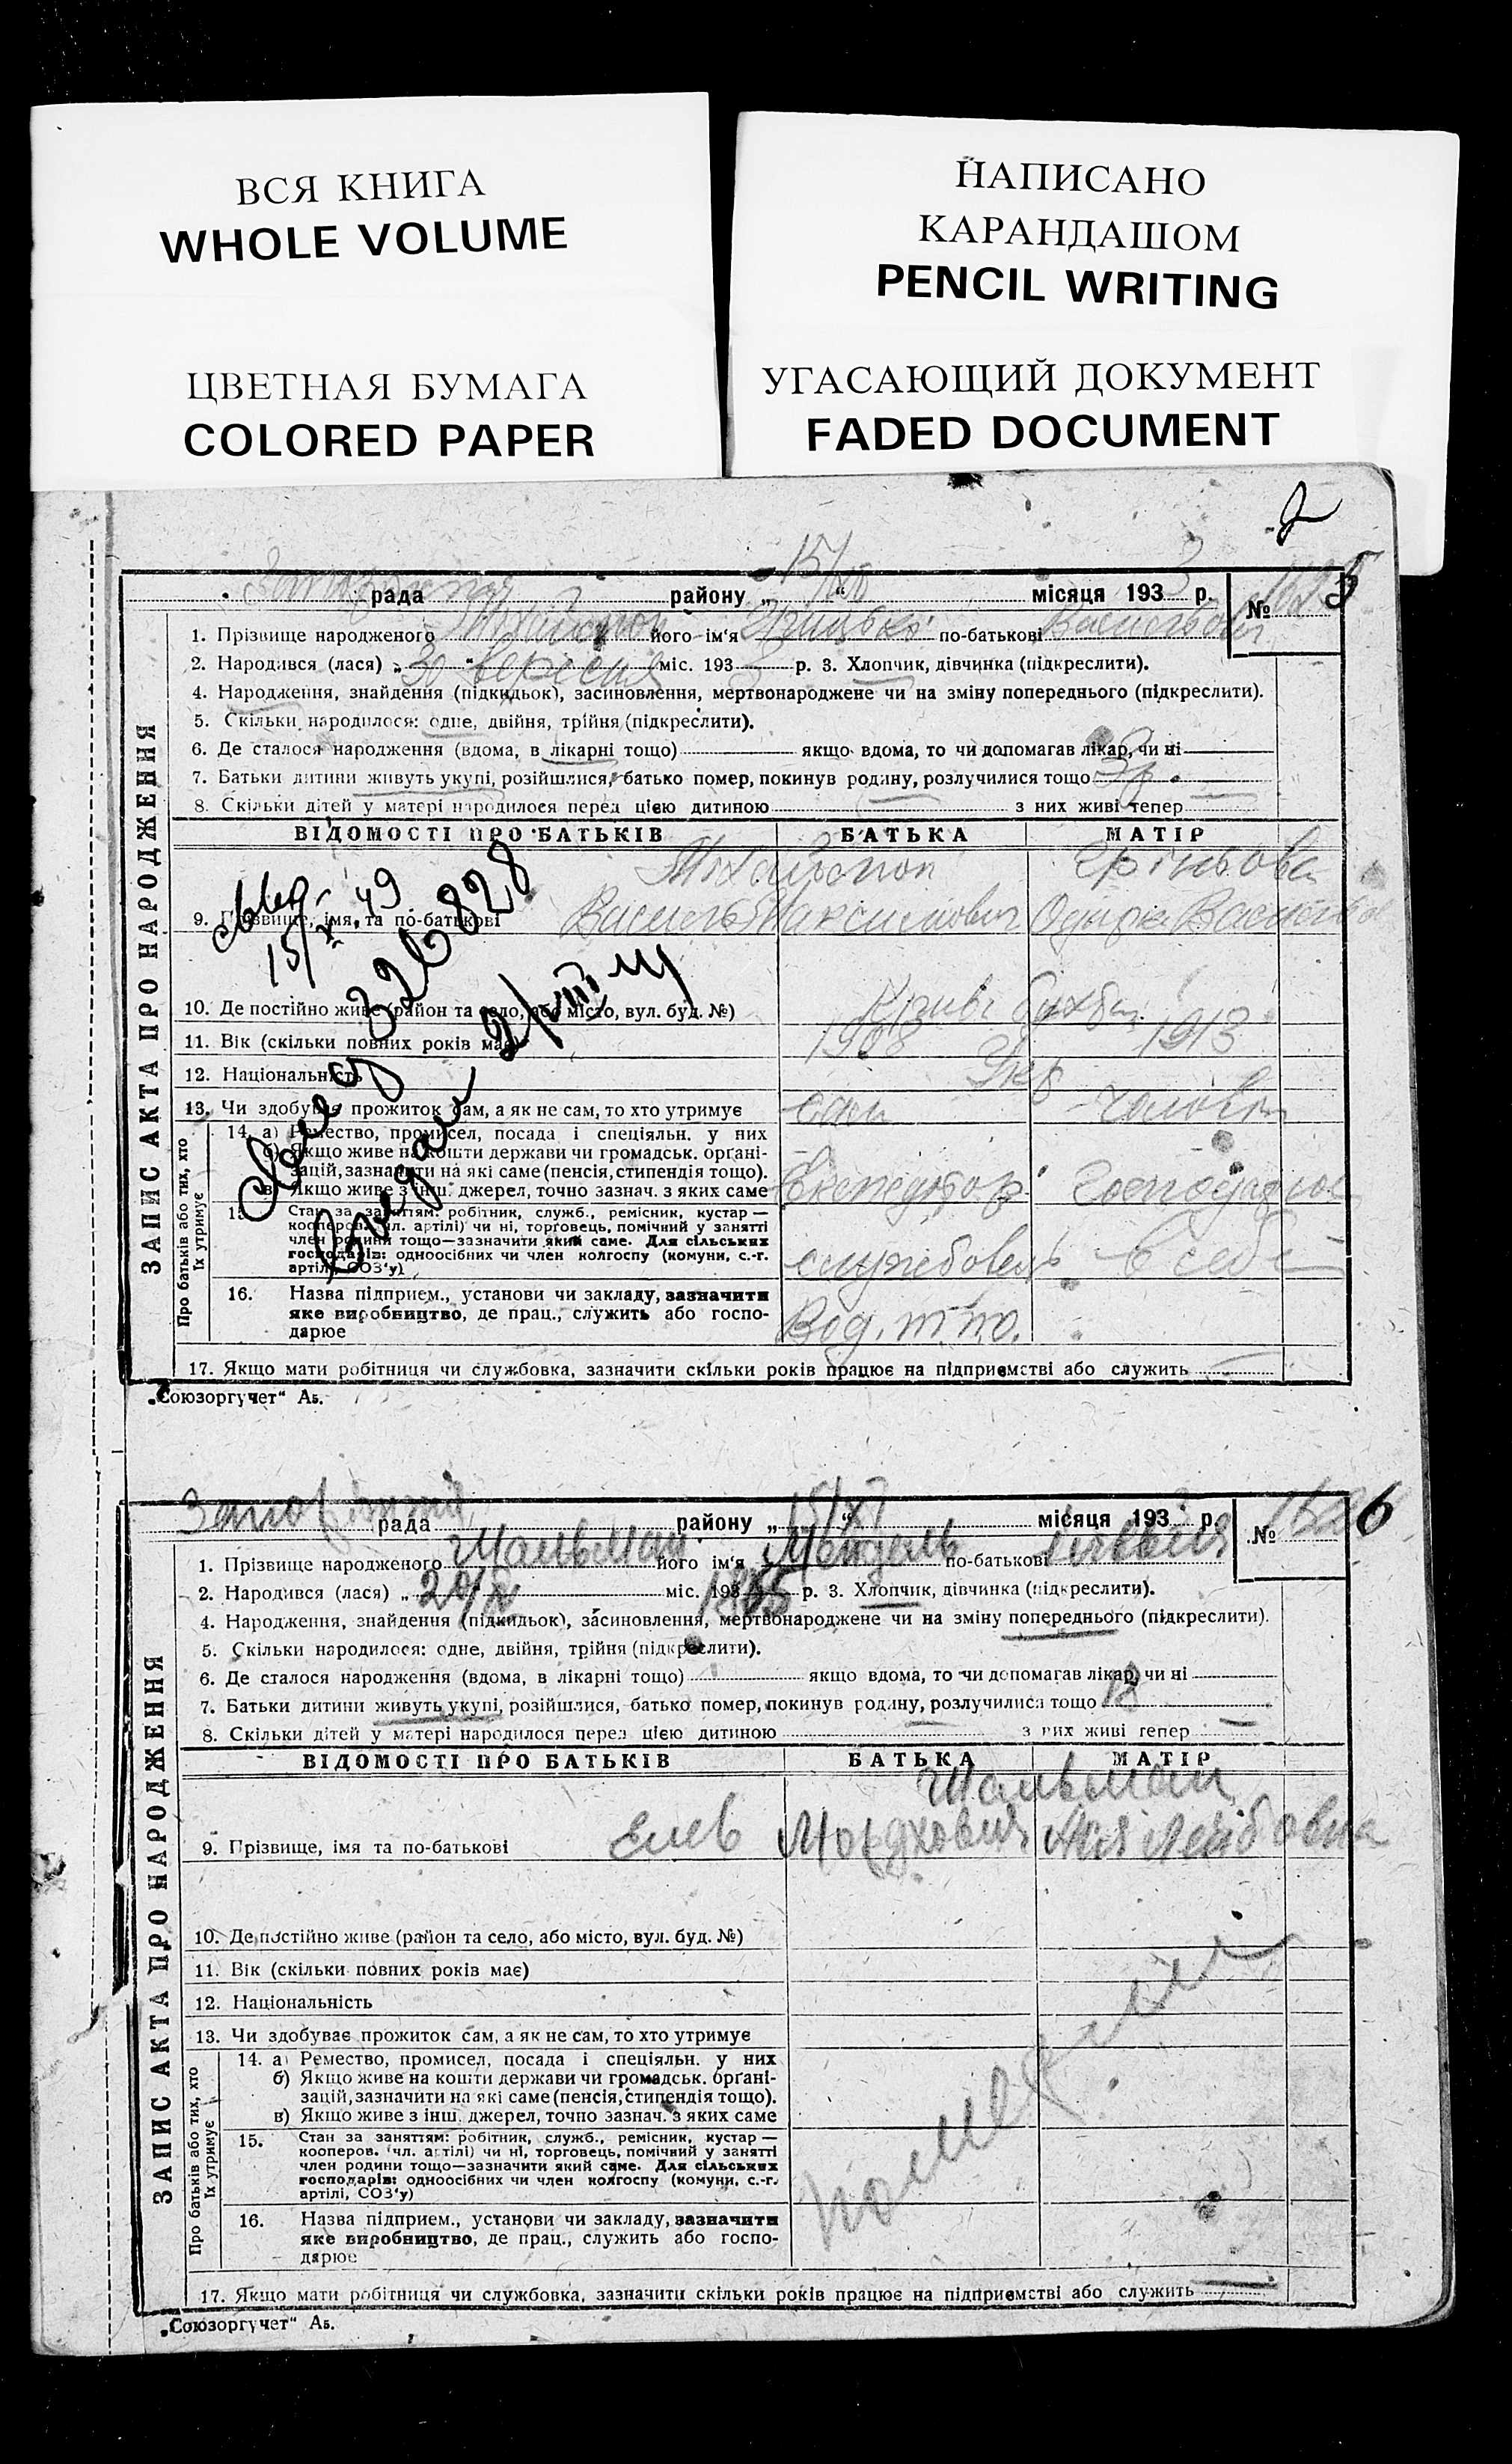 ВСЯ КНИГА
WHOLE VOLUME
ЦВЕТНАЯ БУМАГА
COLORED PAPER
НАПИСАНО
КАРАНДАШОМ
PENCIL WRITING
УГАСАЮЩИЙ ДОКУМЕНТ
FADED DOCUMENT
2
ЗАПИС АКТА ПРО НАРОДЖЕННЯ
рада району „15/XI“ місяця 1933 р. № 5
1. Прізвище народженого його ім'я Грицько по-батькові Васильович
2. Народився (лася) „30“ вересня міс. 1933 р. 3. Хлопчик, дівчинка (підкреслити).
4. Народження, знайдення (підкидьок), засиновлення, мертвонароджене чи на зміну попереднього (підкреслити).
5. Скільки народилося: одне, двійня, трійня (підкреслити).
6. Де сталося народження (вдома, в лікарні тощо) якщо вдома, то чи допомагав лікар, чи ні
7. Батьки дитини живуть укупі, розійшлися, батько помер, покинув родину, розлучилися тощо
8. Скільки дітей у матері народилося перед цією дитиною з них живі тепер
ВІДОМОСТІ ПРО БАТЬКІВ БАТЬКА МАТІР
9. Прізвище, імя, та по-батькові Василь Максимович Одарка
15/X 49
326828
10. Де постійно живе (район та село, або місто, вул. буд. №)
11. Вік (скільки повних років має) 1908 1913
12. Національність Укр
13. Чи здобуває прожиток сам, а як не сам, то хто утримує сам чоловік
Про батьків або тих, хто їх утримує
14. а) Ремество, промисел, посада і спеціяльн. у них
б) Якщо живе на кошти держави чи громадськ. орґані-
зацій, зазначити на які саме (пенсія, стипендія тощо).
в) Якщо живе з інш. джерел, точно зазнач. з яких саме
15. Стан за заняттям: робітник, служб., ремісник, кустар —
кооперов. (чл. артілі) чи ні, торговець, помічний у занятті
член родини тощо—зазначити який саме. Для сільських
господарів: одноосібних чи член колгоспу (комуни, с.-г.
артілі, СОЗ'у)
службовець в себе
16. Назва підприєм., установи чи закладу, зазначити
яке виробництво, де прац., служить або госпо-
дарює
Вод. т-то.
17. Якщо мати робітниця чи службовка, зазначити скільки років працює на підприємстві або служить
„Союзоргучет“ А5.
ЗАПИС АКТА ПРО НАРОДЖЕННЯ
рада району „15/XI“ місяця 1933 р. № 6
1. Прізвище народженого Шальман його ім'я Мендель по-батькові
2. Народився (лася) „ міс. 193 р. 3. Хлопчик, дівчинка (підкреслити).
4. Народження, знайдення (підкидьок), засиновлення, мертвонароджене чи на зміну попереднього (підкреслити).
5. Скільки народилося: одне, двійня, трійня (підкреслити).
6. Де сталося народження (вдома, в лікарні тощо) якщо вдома, то чи допомагав лікар, чи ні
7. Батьки дитини живуть укупі, розійшлися, батько помер, покинув родину, розлучилися тощо
8. Скільки дітей у матері народилося перед цією дитиною з них живі тепер
ВІДОМОСТІ ПРО БАТЬКІВ БАТЬКА МАТІР
Шальман
9. Прізвище, імя та по-батькові Мордкович Лейбовна
10. Де постійно живе (район та село, або місто, вул. буд. №)
11. Вік (скільки повних років має)
12. Національність
13. Чи здобуває прожиток сам, а як не сам, то хто утримує
Про батьків або тих, хто їх утримує
14. а) Ремество, промисел, посада і спеціяльн. у них
б) Якщо живе на кошти держави чи громадськ. орґані-
зацій, зазначити на які саме (пенсія, стипендія тощо).
в) Якщо живе з інш. джерел, точно зазнач. з яких саме
15. Стан за заняттям: робітник, служб., ремісник, кустар —
кооперов. (чл. артілі) чи ні, торговець, помічний у занятті
член родини тощо—зазначити який саме. Для сільських
господарів: одноосібних чи член колгоспу (комуни, с.-г.
артілі, СОЗ'у)
16. Назва підприєм., установи чи закладу, зазначити
яке виробництво, де прац., служить або госпо-
дарює
17. Якщо мати робітниця чи службовка, зазначити скільки років працює на підприємстві або служить
„Союзоргучет“ А5.